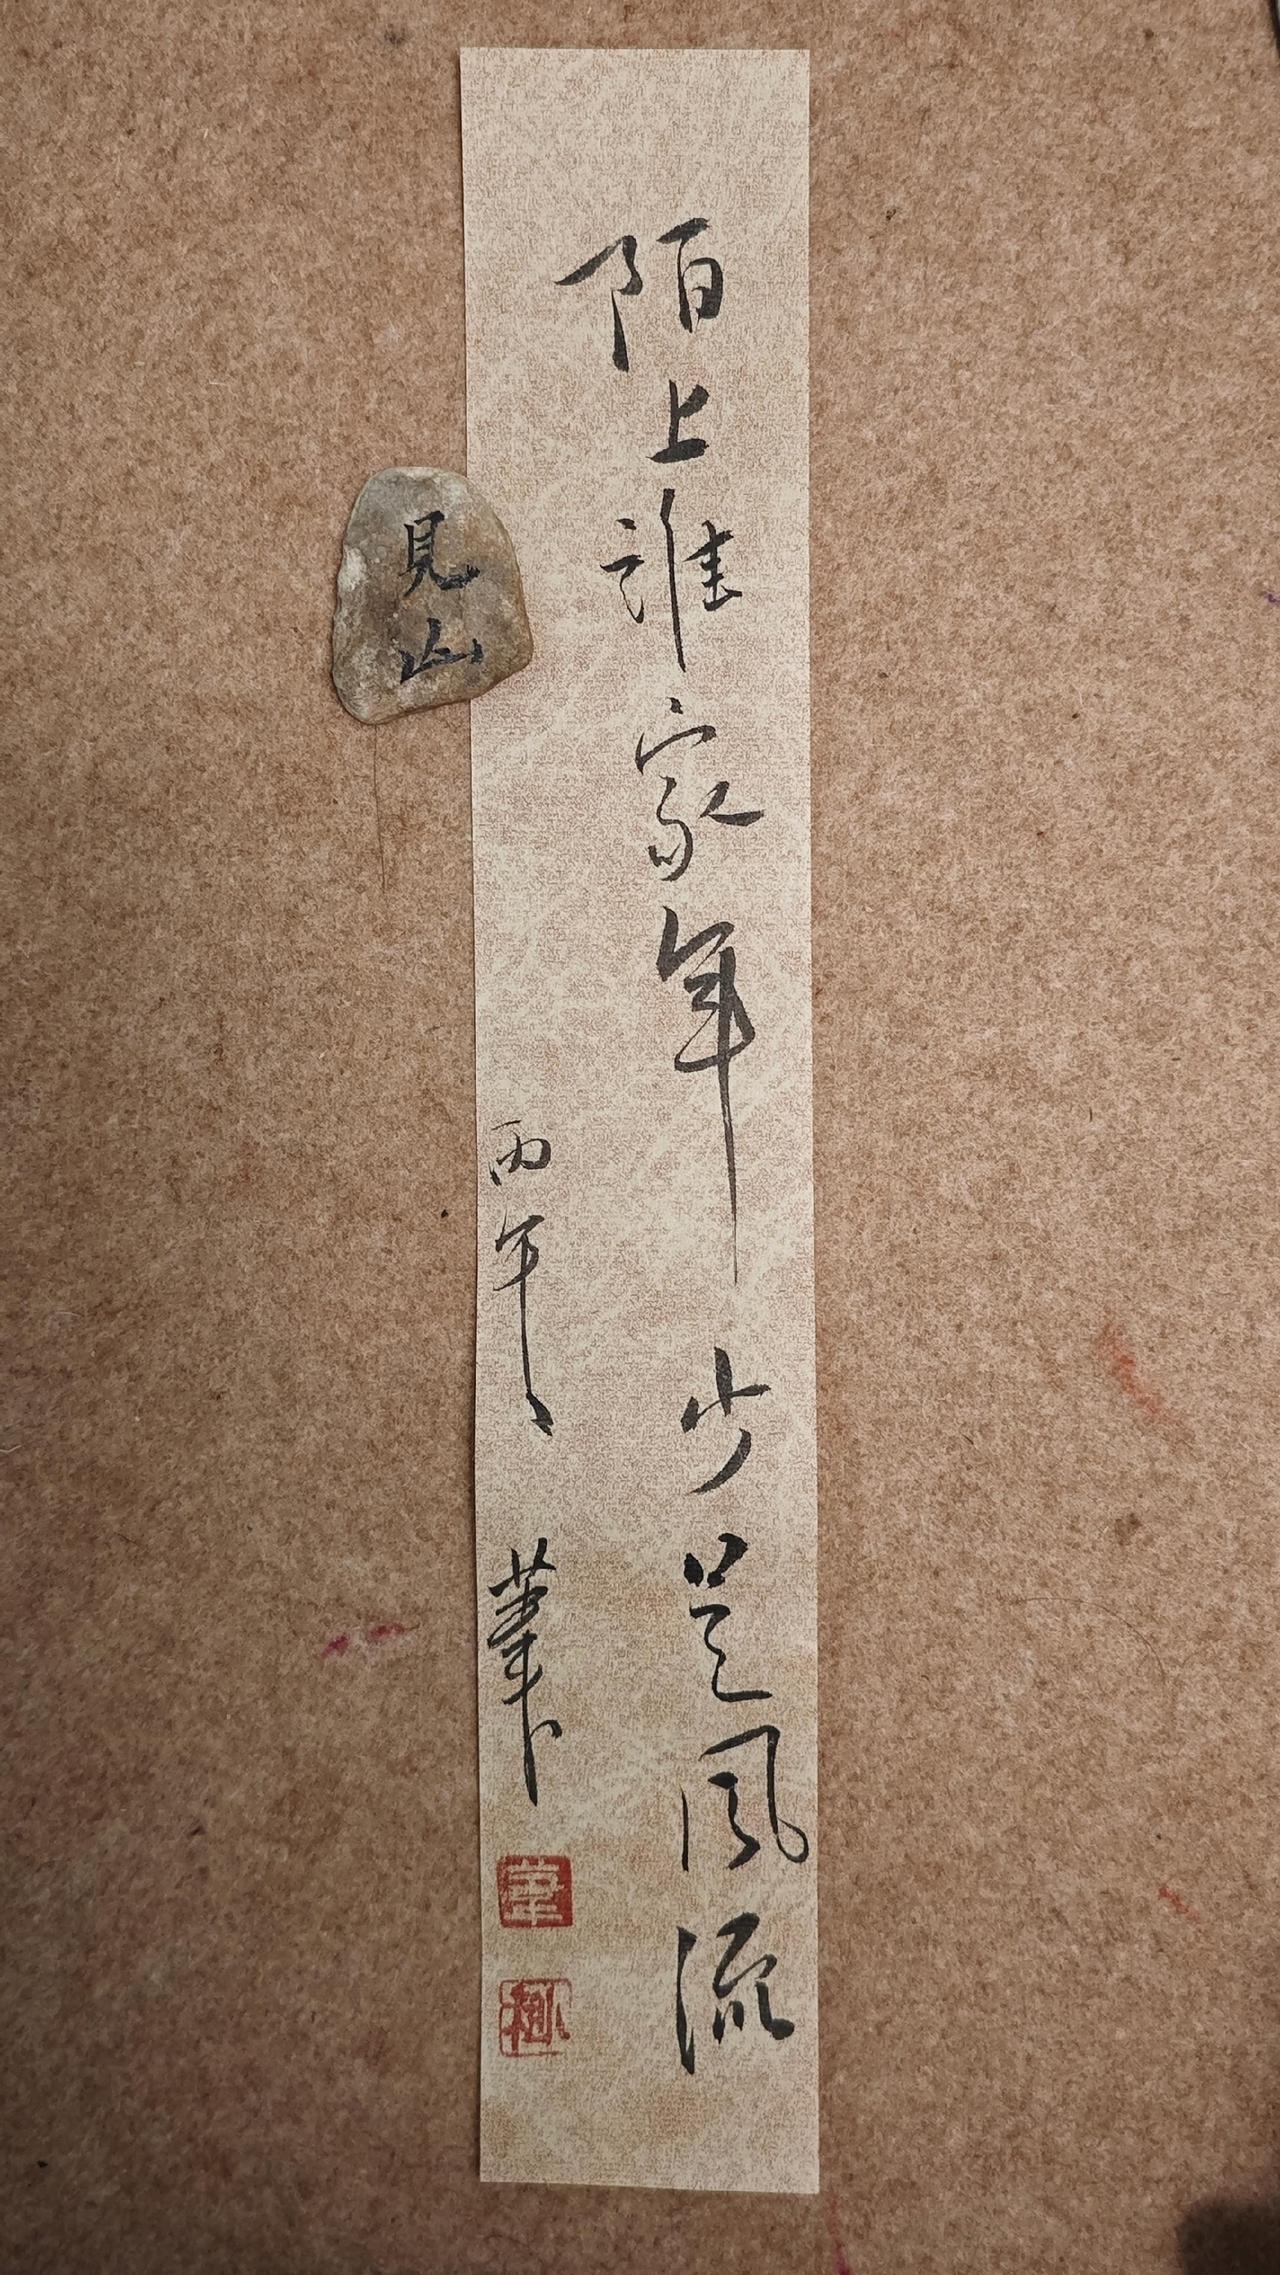 陌上誰家年少足風流
丙午 葦
見山